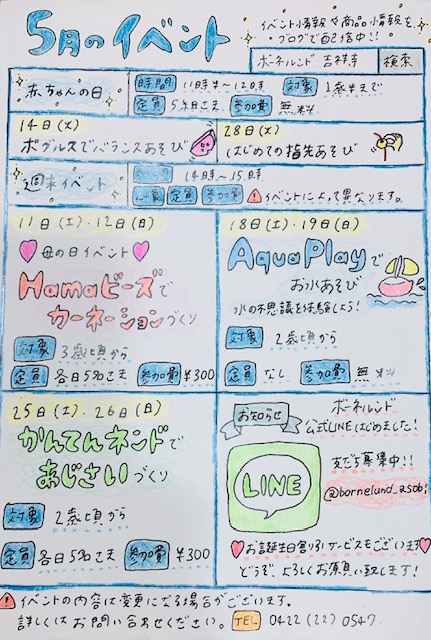 5月のイベント
イベント情報や商品情報を
ブログで配信中!!
ボーネルンド 吉祥寺 検索
赤ちゃんの日
時間 11時半〜12時 対象 1歳半まで
定員 5名さま 参加費 無料
14日(火)
ボブルスでバランスあそび
28日(火)
はじめての指先あそび
週末イベント
14時〜15時
対象 定員 参加費 イベントによって異なります。
11日(土)・12日(日)
母の日イベント
Hamaビーズで
カーネーションづくり
対象 3歳頃から
定員 各日5名さま 参加費 ¥300
18日(土)・19日(日)
AquaPlayで
お水あそび
水の不思議を体験しよう!
対象 2歳頃から
定員 なし 参加費 無料
25日(土)・26日(日)
かんてんネンドで
あじさいづくり
対象 2歳頃から
定員 各日5名さま 参加費 ¥300
お知らせ
ボーネルンド
公式LINEはじめました!
LINE
友だち募集中!!
@bornelund_asobi
お誕生日割引サービスもございます
どうぞ、よろしくお願い致します!
イベントの内容は変更になる場合がございます。
詳しくはお問い合わせください。 TEL 0422(22)0547